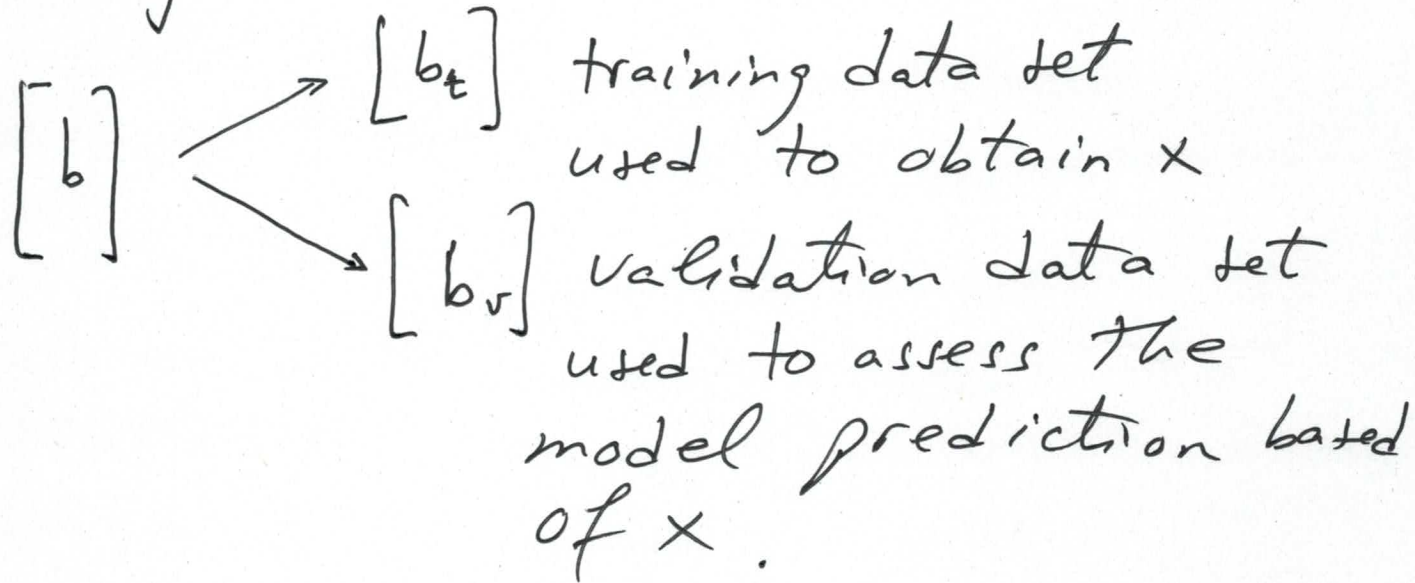 [b_t] training data set
[b] used to obtain x
[b_v] validation data set
used to assess the
model prediction based
of x.